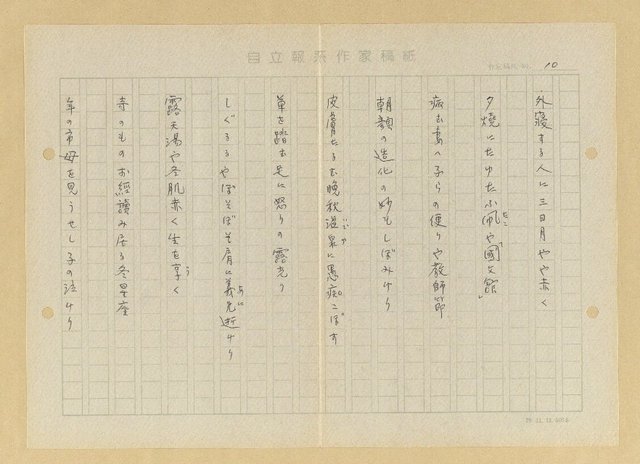 自立報系作家稿紙
10
外寝する人に三日月やや赤く
夕焼にたゆたふ凧や國父館
病む妻へ子らの便りや教師節
朝顔の造化の妙もしぼみけり
皮膚たるむ晩秋温泉に愚痴こぼす
草を踏む足に怒りの露光り
しぐるるやぼそぼそ肩に義兄逝けり
露天湯や冬肌赤く生を享く
寺のもの お經讀み居る冬星座
年の市母を見うせし子の泣けり